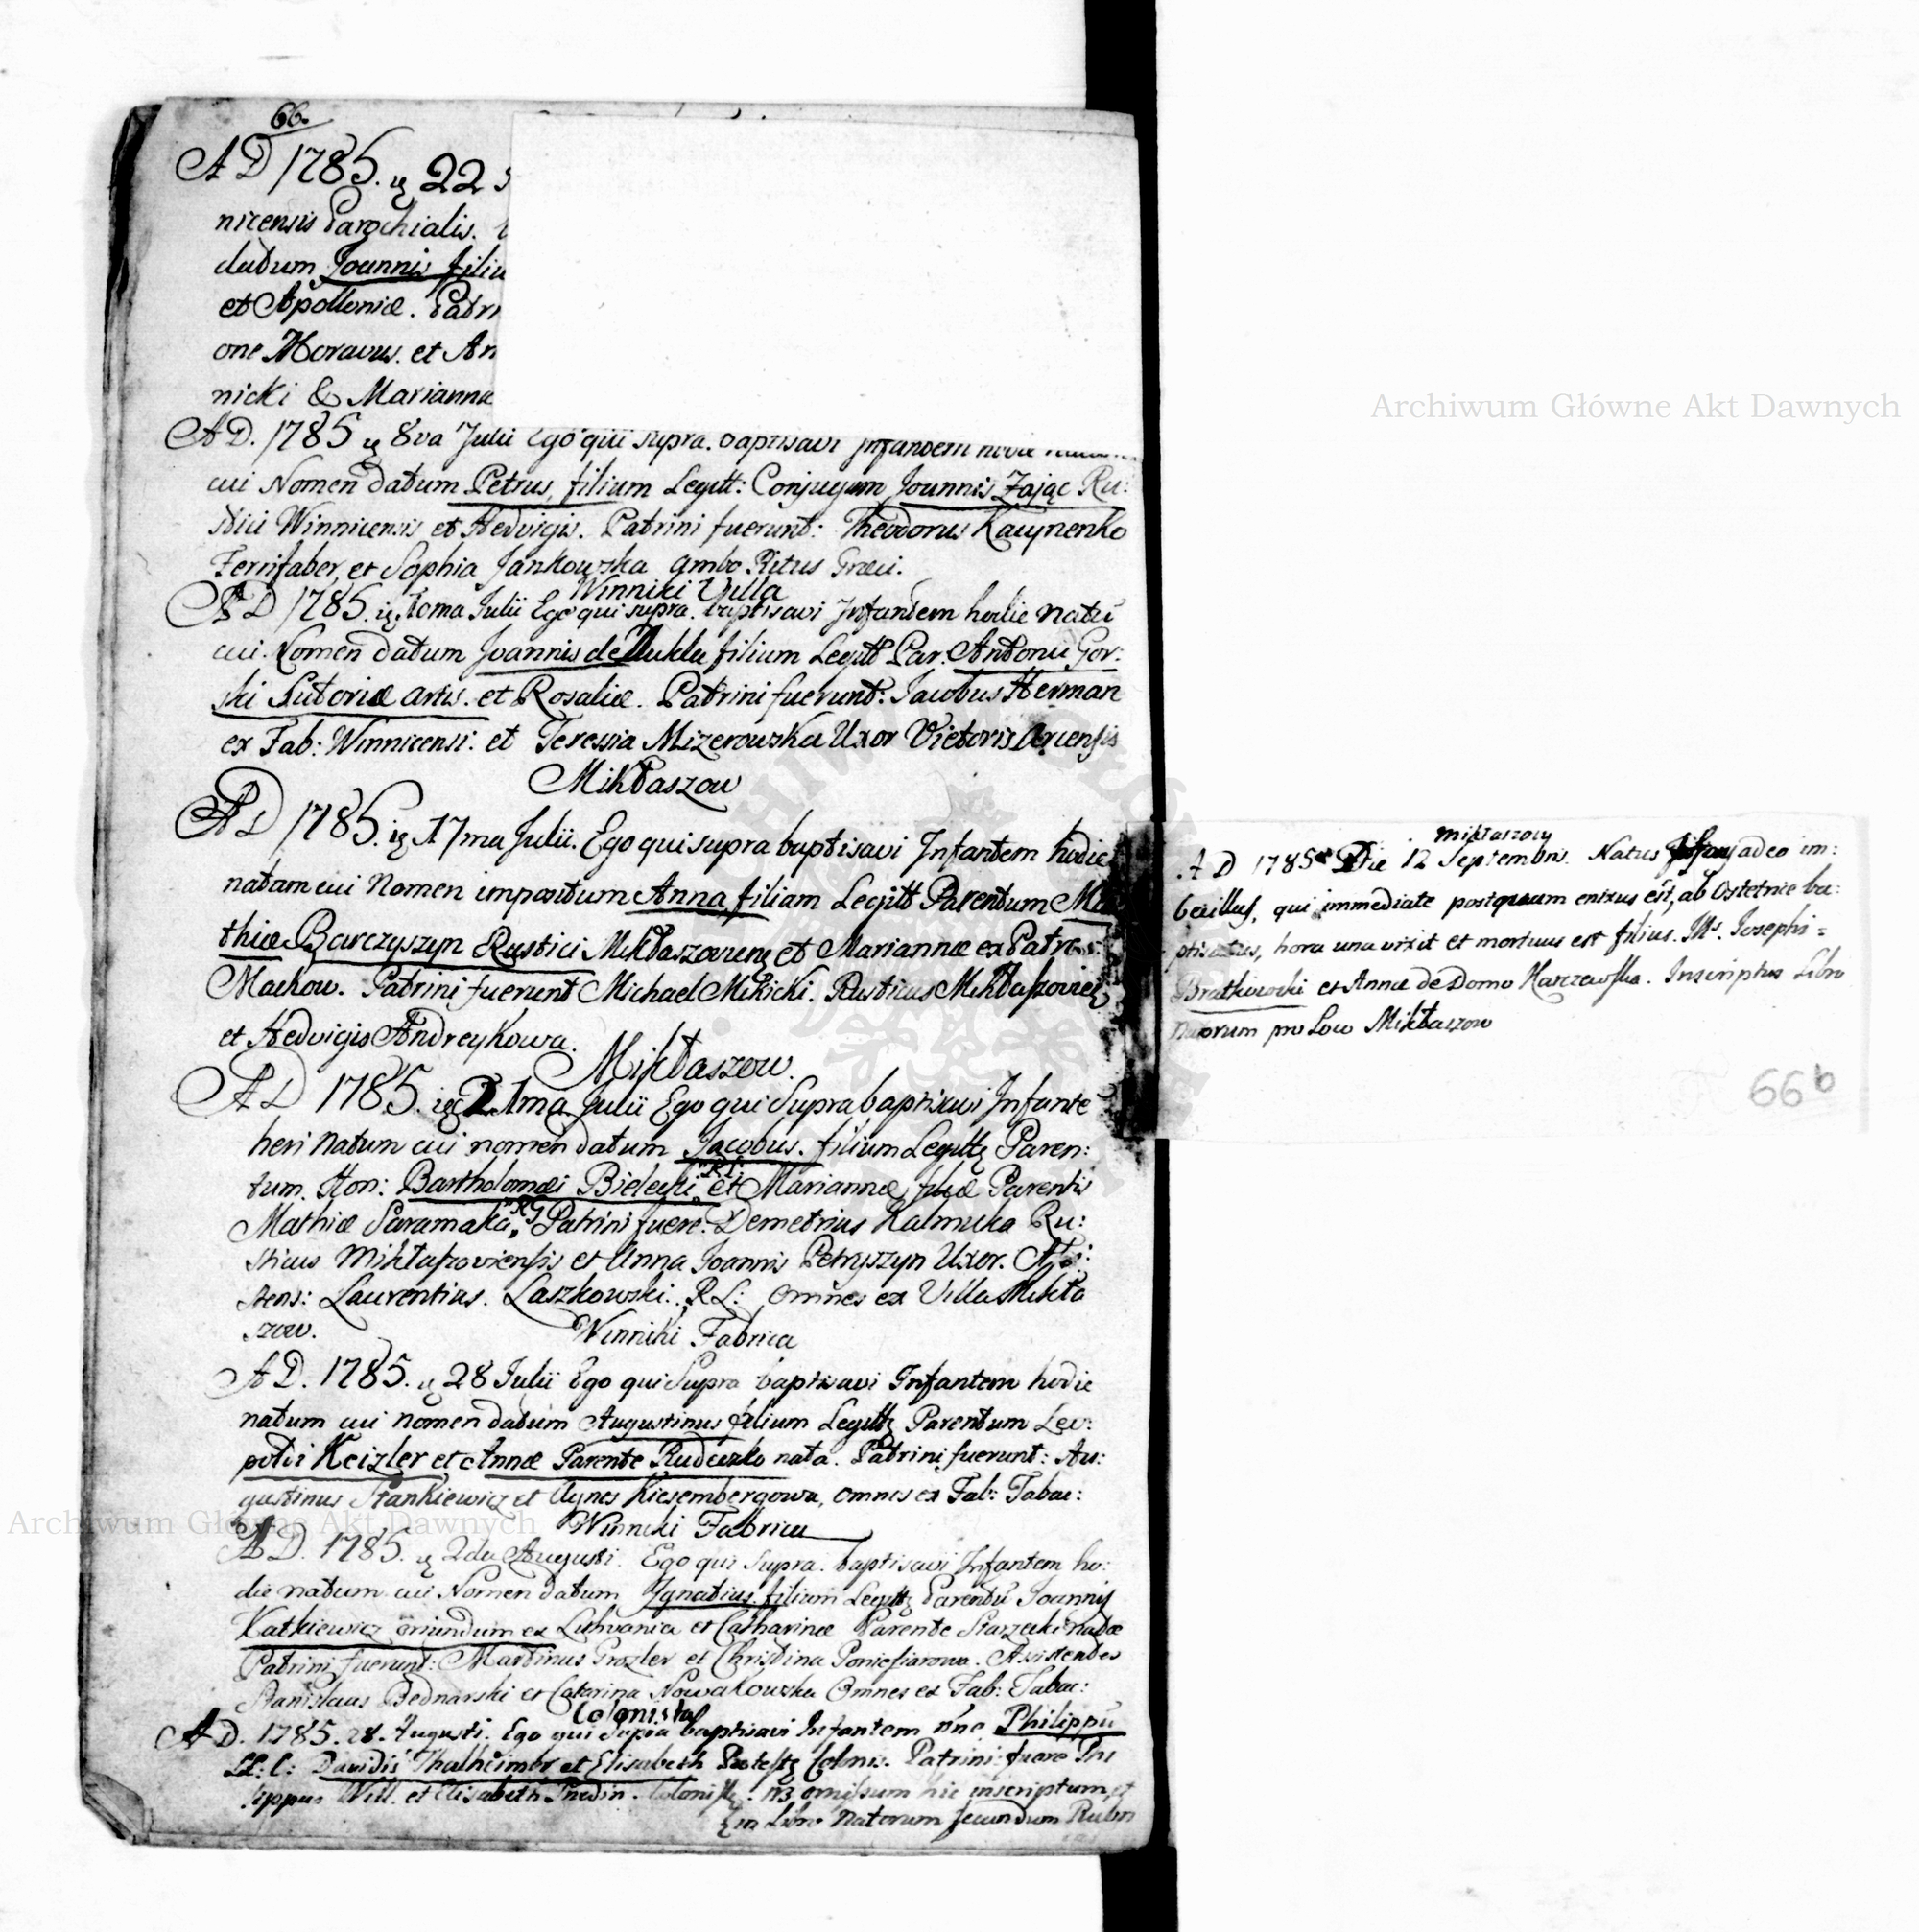 66.
AD 1785. ię 22
nicensis Parochialis.
datum Joannis filiu
et Apolloniæ. Patri
one Moravus. et An
nicki & Marianna
AD. 1785 ię 8va Julii Ego qui supra. baptisavi Infantem hodie
cui Nomen datum Petrus, filium Legitt: Conjugum Joannis Zając Ru:
stici Winnicensis et Hedvigis. Patrini fuerunt: Theodorus
Ferrifaber, et Sophia Jankowska ambo Ritus Græci.
Winniki Villa
AD 1785. ię Julii Ego qui supra. baptisavi Infantem hodie natū
cui Nomen datum Joannis de Dukla filium Legitt Par. Antonii Gor:
ski Sutoriæ artis. et Rosaliæ. Patrini fuerunt: Jacobus Herman
ex Fab: Winnicensi: et Teressia Mizerowska Uxor Vietoris Arcensis
Mikłaszow
AD 1785. ię 17ma Julii. Ego qui supra baptisavi Infantem hodie
natam cui Nomen impositum Anna filiam Legitt Parentum Ma
thiæ Barczyszyn Rustici et Mariannæ ex Patre
Machow. Patrini fuerunt Michael Mikicki. Rusticus
et Hedvigis Andreykowa.
Mikłaszow.
AD 1785. ię 21ma Julii Ego qui Supra baptisavi Infante
heri natum cui nomen datum Jacobus. filium Legittę Paren:
tum. Hon: Bartholomæi Bielecki "RL" et Mariannæ filiæ Parentis
Mathiæ Saramaka "RG" Patrini fuere: Demetrius Kalmuka Ru:
sticus Mikłaszoviensis et Anna Joannis Petryszyn Uxor. Assi:
stens: Laurentius. Laszkowski. RL: Omnes ex Villa Mikła
szow.
Winniki Fabrica
AD. 1785. ię 28 Julii Ego qui Supra baptisavi Infantem hodie
natum cui nomen datum Augustinus filium Legittę Parentum Leo:
poldi Keizler et Annæ Parente Rudeczko nata. Patrini fuerunt: Au:
gustinus Stankiewicz et Agnes Kiesembergowa, omnes ex Fab: Tabac:
Winniki Fabrica
AD. 1785. ię 2da Augusti. Ego qui Supra. baptisavi Infantem ho:
die natum cui Nomen datum Ignatius. filium Legittę Parentū Joannis
Katkiewicz oriundum ex Lithvania et Catharinæ Parente Starzecki natæ
Patrini fuerunt: Martinus Grozler et Christina Poniesiarowa. Assistentes
Stanislaus Bednarski et Catarina Nowakowska Omnes ex Fab: Tabac:
Colonistæ
AD. 1785. 28. Augusti. Ego qui Supra baptisavi Infantem nne Philippū
LL: C: Davidis Thalheimer et Elisabeth Colonis. Patrini fuere Phi
lippus Will. et Elisabeth omissum hic inscriptum, et
in Libro Natorum secundum
Mikłaszow
AD 1785 Die 12 Septembris. Natus Infans adeo im:
becillus, qui immediate postquam enixus est, ab Ostetrice ba:
ptisatus, hora una vixit et mortuus est filius. Josephi
Bratkowski et Annæ de Domo Karczewska. Inscriptus Libro
Natorum pro Loco Mikłaszow
66b
Archiwum Główne Akt Dawnych
Archiwum Główne Akt Dawnych